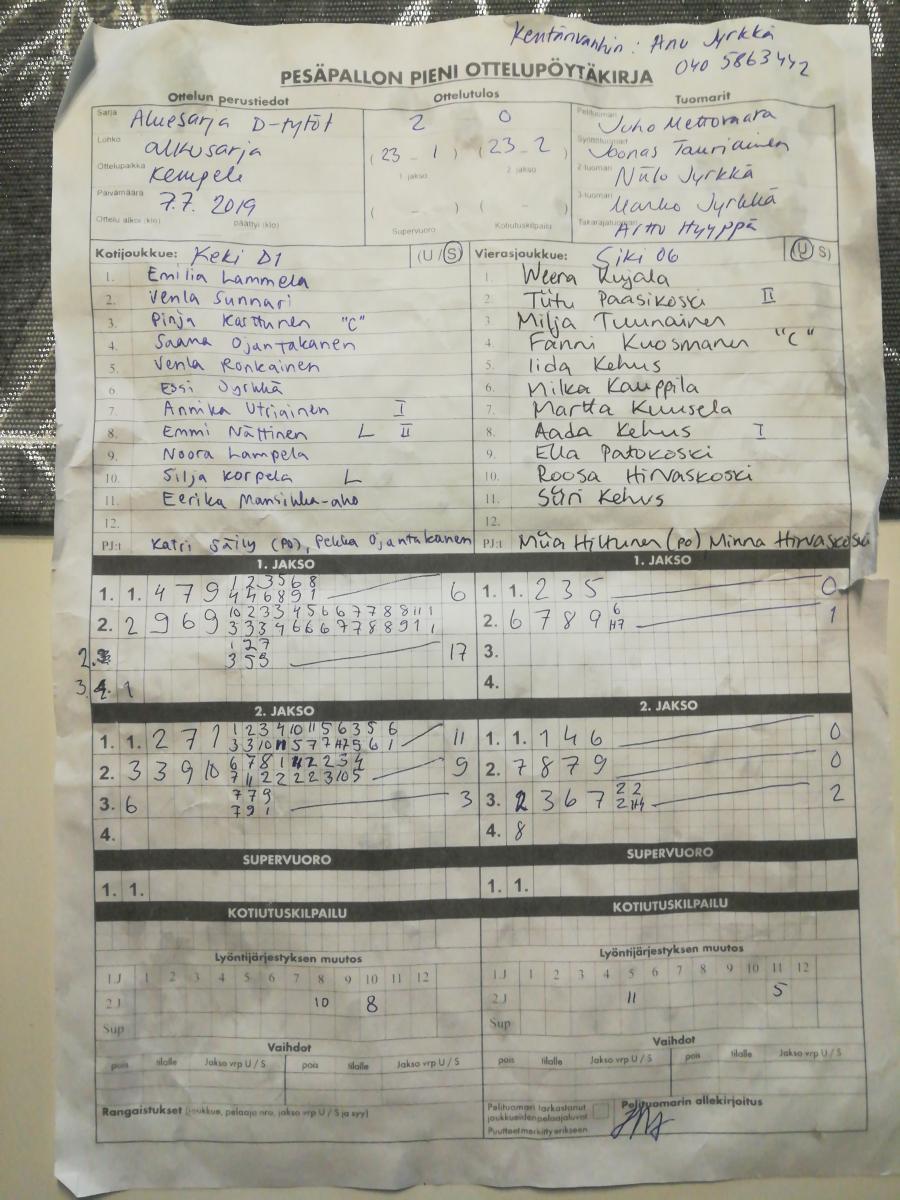 Kentänvanhin: Anu Jyrkkä
040 5863442
PESÄPALLON PIENI OTTELUPÖYTÄKIRJA
Ottelun perustiedot
Ottelutulos
Tuomarit
Sarja Aluesarja D-tytöt
Lohko alkusarja
Ottelupaikka Kempele
Päivämäärä 7.7. 2019
Ottelu alkoi (klo) päättyi (klo)
2 0
(23 - 1) (23 - 2)
1 jakso 2 jakso
( - ) ( - )
Supervuoro Kotiutuskilpailu
Pelituomari Juho Mettovaara
Syöttötuomari Joonas Tauriainen
2-tuomari Niilo Jyrkkä
3-tuomari Marko Jyrkkä
Takarajatuomari Arttu Hyyppä
Kotijoukkue: Keki D1 (U / S)
1. Emilia Lammela
2. Venla Sunnari
3. Pinja Karttunen "C"
4. Saana Ojantakanen
5. Venla Ronkainen
6. Essi Jyrkkä
7. Annika Utriainen I
8. Emmi Nättinen L II
9. Noora Lampela
10. Silja Korpela L
11. Eerika Mansikka-aho
12.
PJ:t Katri Säily (PO), Pekka Ojantakanen
Vierasjoukkue: Siki 06 (U / S)
1. Weera Kujala
2. Tiitu Paasikoski II
3. Milja Tuunainen
4. Fanni Kuosmanen "C"
5. Iida Kehus
6. Milka Kauppila
7. Martta Kuusela
8. Aada Kehus I
9. Ella Patokoski
10. Roosa Hirvaskoski
11. Siiri Kehus
12.
PJ:t Miia Hiltunen (PO) Minna Hirvaskoski
1. JAKSO
1. 1. 4 7 9 1 2 3 5 6 8 6
4 4 6 8 9 1
2. 2 9 6 9 10 2 3 3 4 5 6 6 7 7 8 8 11 1
3 3 3 4 6 6 6 7 7 8 8 9 1 1
1 2 7 17
3 5 5
3. 4. 1
1. JAKSO
1. 1. 2 3 5 0
2. 6 7 8 9 6 1
H7
3.
4.
2. JAKSO
1. 1. 2 7 1 1 2 3 4 10 11 5 6 3 5 6 11
3 3 10 11 5 7 7 H7 5 6 1
2. 3 3 9 10 6 7 8 1 2 2 3 4 9
7 11 2 2 2 2 3 10 5
3. 6 7 7 9 3
7 9 1
4.
2. JAKSO
1. 1. 1 4 6 0
2. 7 8 7 9 0
3. 2 3 6 7 2 2 2
2 H4
4. 8
SUPERVUORO
1. 1.
SUPERVUORO
1. 1.
KOTIUTUSKILPAILU
KOTIUTUSKILPAILU
Lyöntijärjestyksen muutos
1J 1 2 3 4 5 6 7 8 9 10 11 12
2J 10 8
Sup
Lyöntijärjestyksen muutos
1J 1 2 3 4 5 6 7 8 9 10 11 12
2J 11 5
Sup
Vaihdot
pois tilalle Jakso vrp U / S pois tilalle Jakso vrp U / S
Vaihdot
pois tilalle Jakso vrp U / S pois tilalle Jakso vrp U / S
Rangaistukset (joukkue, pelaaja nro, jakso vrp U / S ja syy)
Pelituomari tarkastanut
joukkueiden pelaajaluvat
Puutteet merkitty erikseen
Pelituomarin allekirjoitus